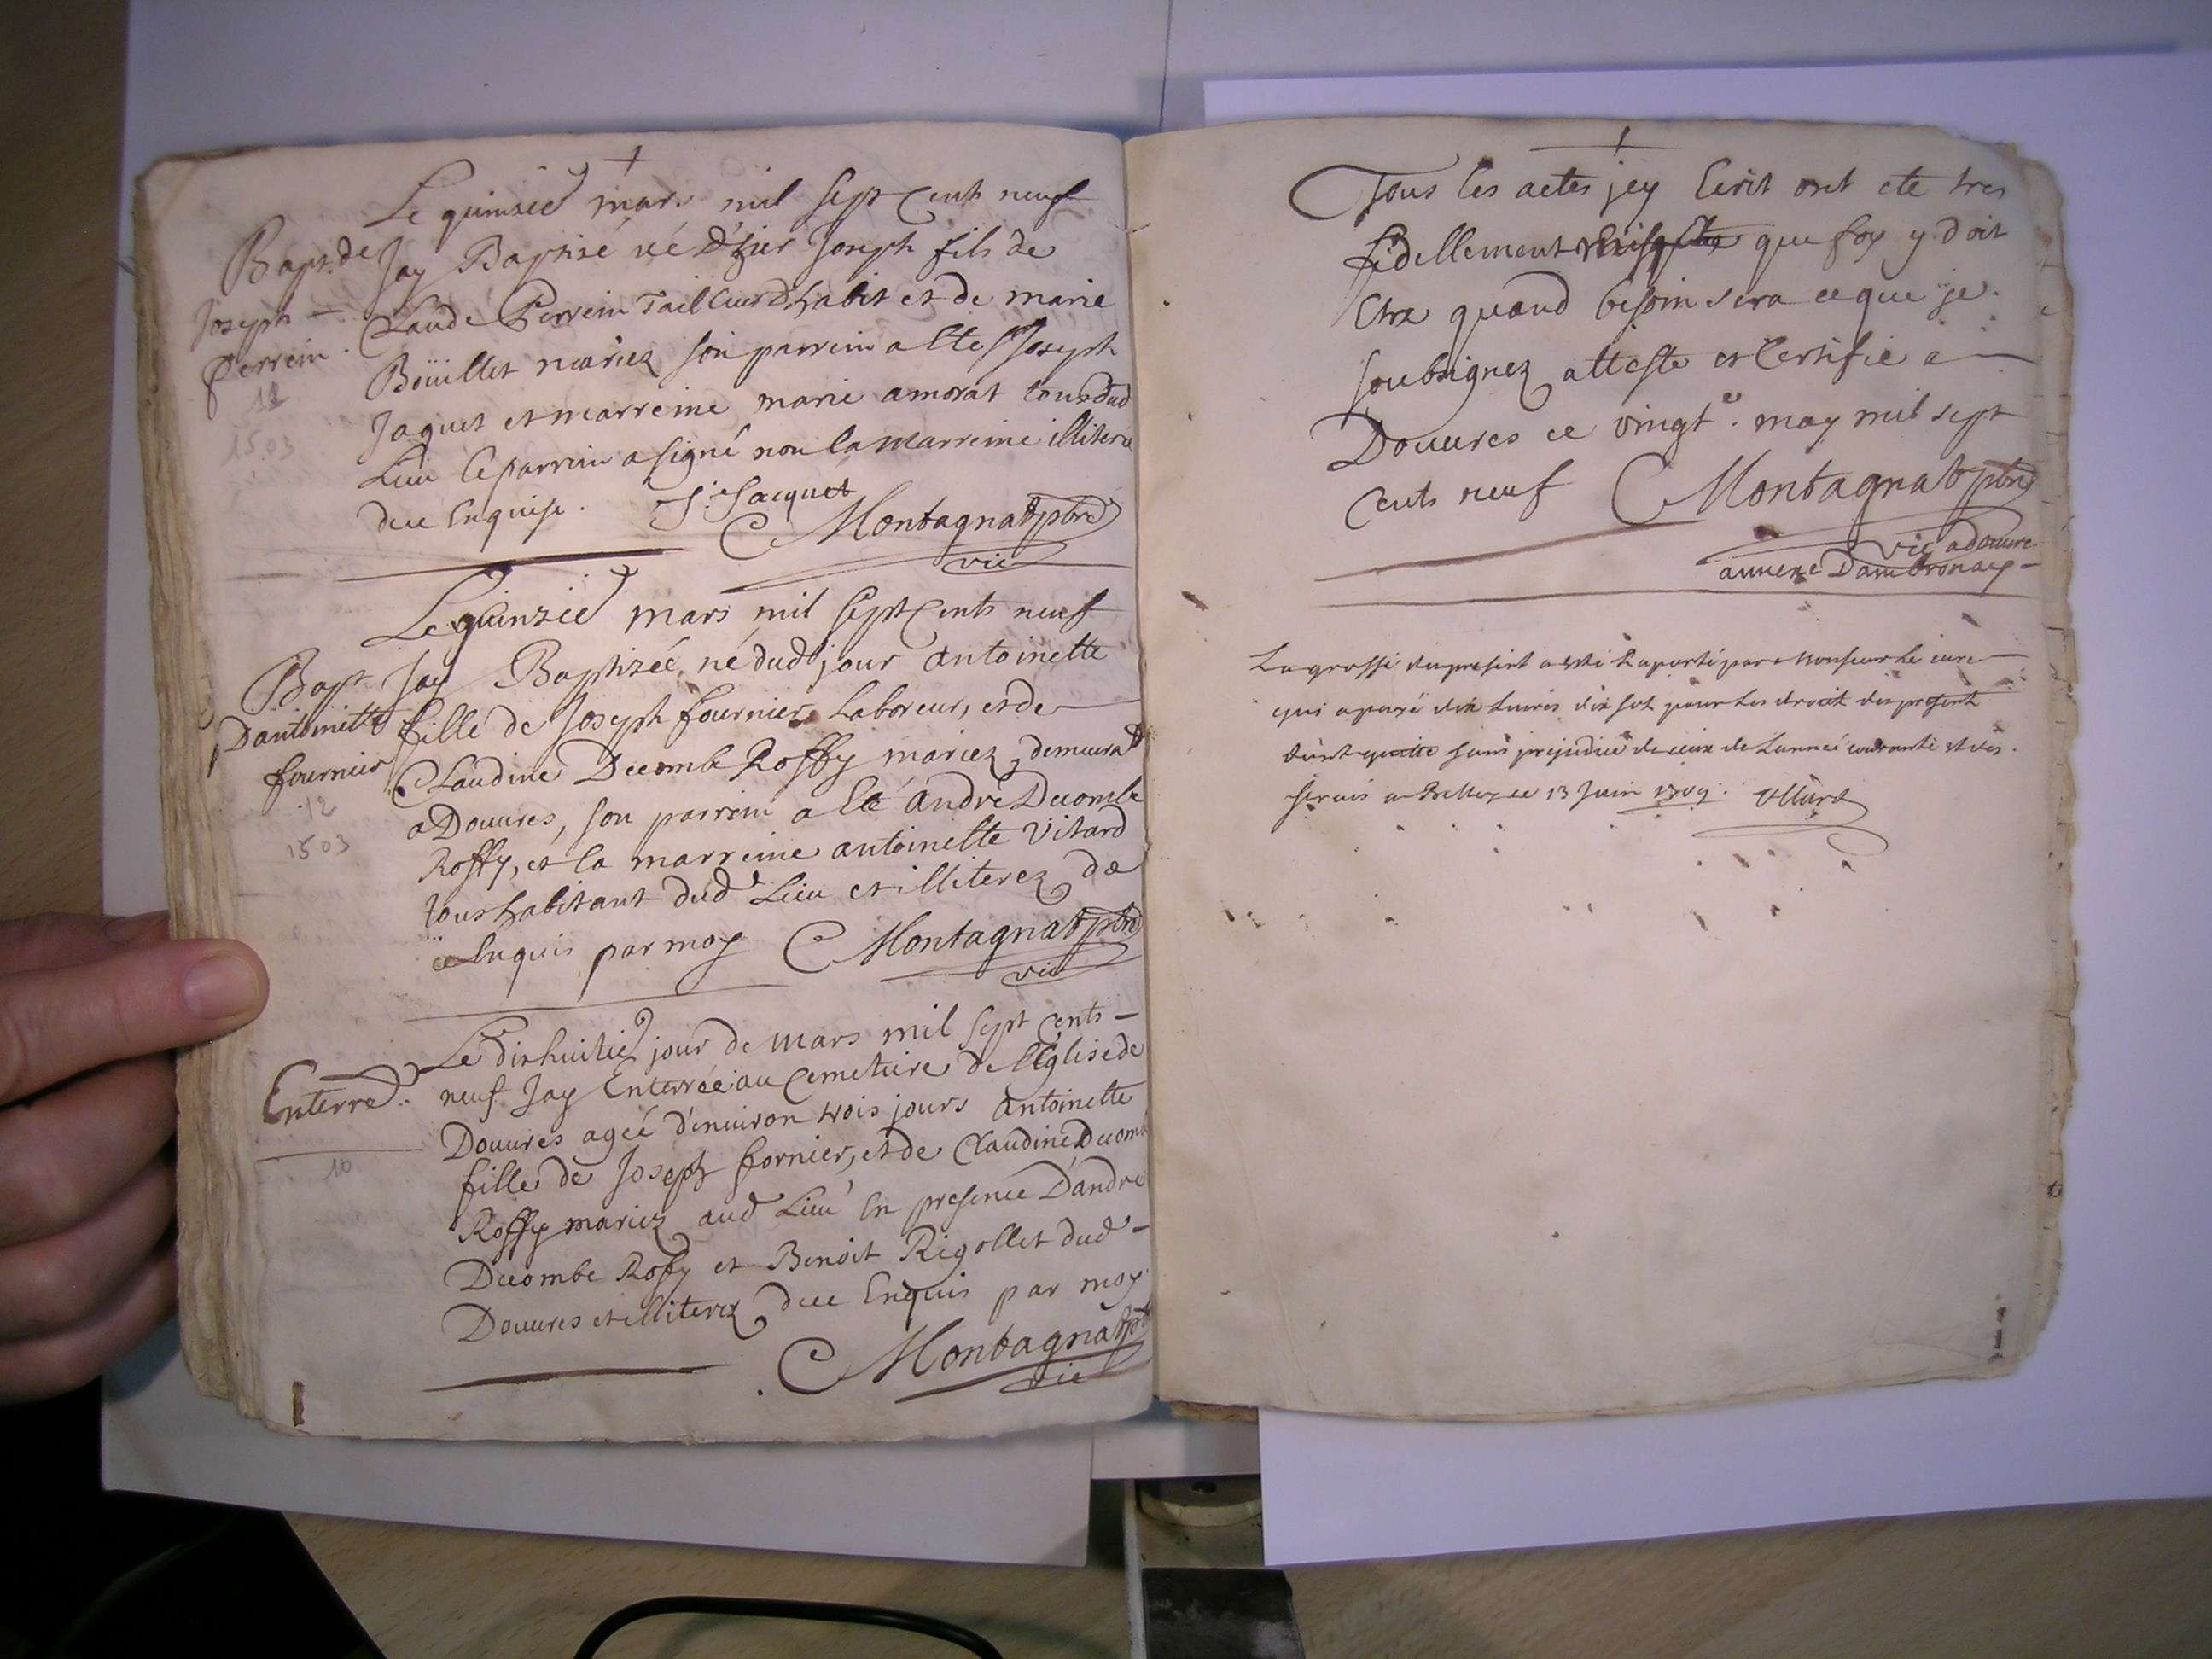 Le quinzie mars mil sept cent neuf
Bapt. de
Joseph
Perrein
12
1503
Jay Baptisé né d'hier Joseph fils de
Claude Perrein Tailleur d'habit et de marie
Boüillet mariez son parrein a eté Sr Joseph
Jaquet et marreine marie amorat tous dud
Lieu le parrein a signé non la marreine illiterée
de ce Enquise. J. Jacquet
Montagnat ptre
vic
Le quinzie mars mil sept cents neuf
Bapt
Dantoinette
fournier
12
1503
Jay Baptizée née dudt jour antoinette
fille de Joseph fournier Laboreur, et de
Claudine Decombe Roffy mariez, demeurat
a Douures, son parrein a eté andré Decombe
Roffy, et la marreine antoinette Vitard
tous habitant dud Lieu et illiterez de
ce Enquis par moy Montagnat ptre
vic
Enterre.
10
Le dixhuitie jour de mars mil sept cents
neuf Jay Enterrée au Cemetiere de l'Eglise de
Douures agéé d'enuiron trois jours antoinette
fille de Joseph fornier, et de Claudine Decombe
Roffy mariez aud Lieu En presence D'andre
Decombe Roffy et Benoit Rigollet dud
Douures et illiterez de ce Enquis par moy
Montagnat ptre
vic
Tous les actes jey Ecrit ont ete tres
fidellement que foy y doit
Etre quand besoin sera ce que je
soubsignez atteste et Certifie a
Douures ce vingte. may mil sept
Cents neuf Montagnat ptre
vic a douure
annexe Dambronay
La grosse du present a esté Raporté par Monsieur le curé
qui a payé dix Liures dix sols pour les droit du present
dont quitte sans prejudice de ceux de Lannée courante et des
a Belley ce 13 Juin 1709.